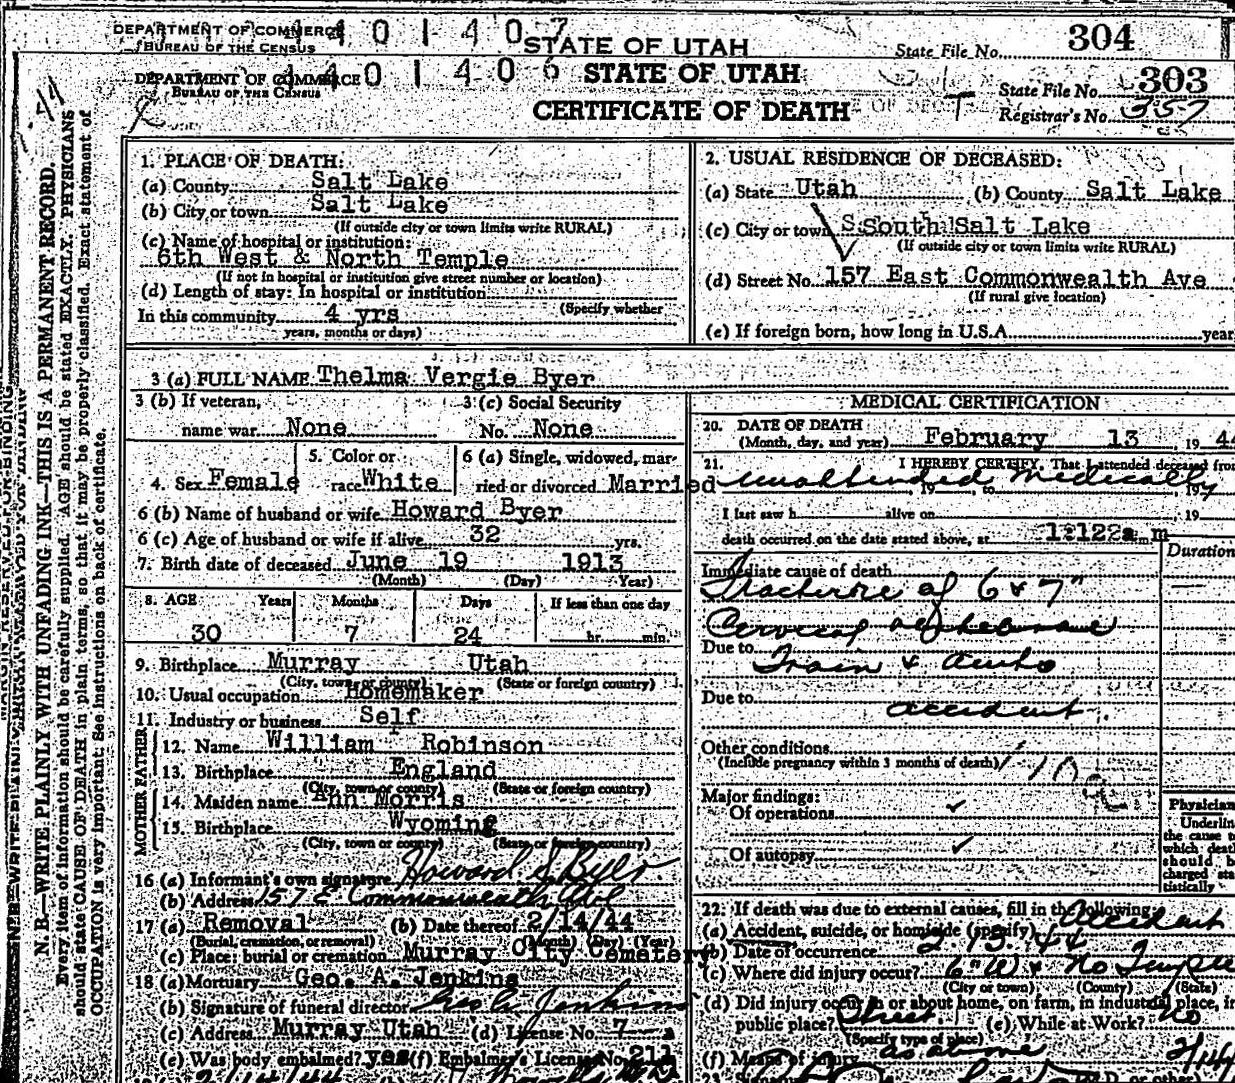 DEPARTMENT OF COMMERCE
BUREAU OF THE CENSUS
1401407
STATE OF UTAH
State File No. 304
DEPARTMENT OF COMMERCE
BUREAU OF THE CENSUS
1401406
STATE OF UTAH
State File No. 303
CERTIFICATE OF DEATH
Registrar's No. 357
N. B.—WRITE PLAINLY WITH UNFADING INK—THIS IS A PERMANENT RECORD.
Every item of information should be carefully supplied. AGE should be stated EXACTLY. PHYSICIANS
should state CAUSE OF DEATH in plain terms, so that it may be properly classified. Exact statement of
OCCUPATION is very important. See instructions on back of certificate.
1. PLACE OF DEATH:
(a) County Salt Lake
(b) City or town Salt Lake
(If outside city or town limits write RURAL)
(c) Name of hospital or institution:
6th West & North Temple
(If not in hospital or institution give street number or location)
(d) Length of stay: In hospital or institution
(Specify whether
In this community 4 yrs
years, months or days)
2. USUAL RESIDENCE OF DECEASED:
(a) State Utah (b) County Salt Lake
(c) City or town S South Salt Lake
(If outside city or town limits write RURAL)
(d) Street No. 157 East Commonwealth Ave
(If rural give location)
(e) If foreign born, how long in U.S.A. year
3 (a) FULL NAME Thelma Vergie Byer
3 (b) If veteran,
name war None
3 (c) Social Security
No. None
4. Sex Female
5. Color or
race White
6 (a) Single, widowed, mar-
ried or divorced Married
6 (b) Name of husband or wife Howard Byer
6 (c) Age of husband or wife if alive 32 yrs.
7. Birth date of deceased June 19 1913
(Month) (Day) Year)
8. AGE Years Months Days If less than one day
30 7 24 hr. min.
9. Birthplace Murray Utah
(City, town or county) (State or foreign country)
10. Usual occupation Homemaker
11. Industry or business Self
FATHER
12. Name William Robinson
13. Birthplace England
(City, town or county) (State or foreign country)
MOTHER
14. Maiden name Ann Morris
15. Birthplace Wyoming
(City, town or county) (State or foreign country)
16 (a) Informant's own signature Howard S Byer
(b) Address 157 E Commonwealth Ave
17 (a) Removal (b) Date thereof 2/14/44
(Burial, cremation, or removal) (Month) (Day) (Year)
(c) Place: burial or cremation Murray City Cemetery
18 (a) Mortuary Geo. A. Jenkins
(b) Signature of funeral director Geo A Jenkins
(c) Address Murray Utah (d) License No. 7
(e) Was body embalmed? yes (f) Embalmer's License No. 211
2/14/44
MEDICAL CERTIFICATION
20. DATE OF DEATH
(Month, day, and year) February 13 , 19 44
21. I HEREBY CERTIFY, That I attended deceased from
unattended medically
, 19 , to , 19
I last saw h alive on , 19
death occurred on the date stated above, at 12:22a m
Duration
Immediate cause of death
Fracture of 6 & 7"
Cervical vertebrae
Due to Train & auto
Due to accident.
Other conditions
(Include pregnancy within 3 months of death)
Major findings:
Of operations ✓
Of autopsy ✓
Physician
Underlin
the cause t
which deat
should b
charged sta
tistically
22. If death was due to external causes, fill in the following:
(a) Accident, suicide, or homicide (specify) Accident
(b) Date of occurrence 2 13 44
(c) Where did injury occur? 6" W & No Temple
(City or town) (County) (State)
(d) Did injury occur in or about home, on farm, in industrial place, in
public place? Street. (e) While at Work? no
(Specify type of place)
(f) Means of injury as above